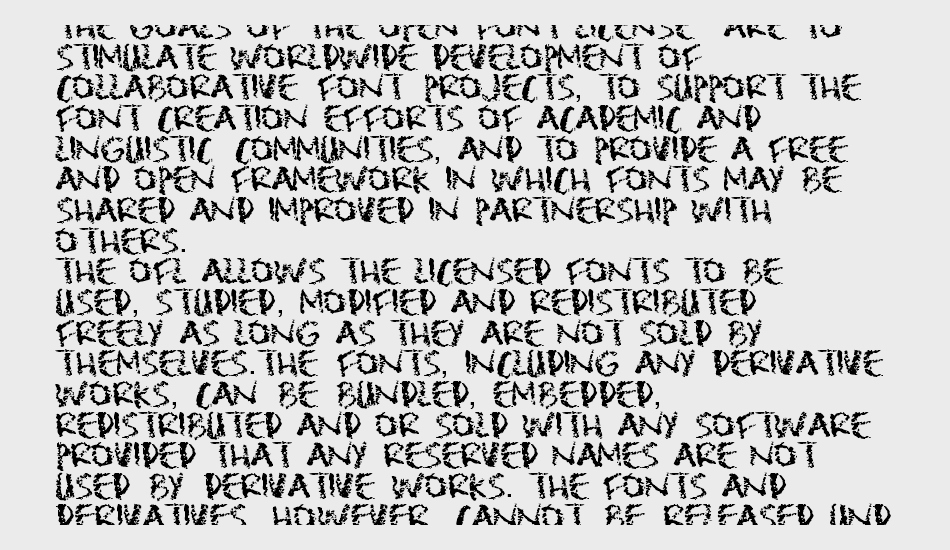 THE GOALS OF THE OPEN FONT LICENSE ARE TO
STIMULATE WORLDWIDE DEVELOPMENT OF
COLLABORATIVE FONT PROJECTS, TO SUPPORT THE
FONT CREATION EFFORTS OF ACADEMIC AND
LINGUISTIC COMMUNITIES, AND TO PROVIDE A FREE
AND OPEN FRAMEWORK IN WHICH FONTS MAY BE
SHARED AND IMPROVED IN PARTNERSHIP WITH
OTHERS.
THE OFL ALLOWS THE LICENSED FONTS TO BE
USED, STUDIED, MODIFIED AND REDISTRIBUTED
FREELY AS LONG AS THEY ARE NOT SOLD BY
THEMSELVES. THE FONTS, INCLUDING ANY DERIVATIVE
WORKS, CAN BE BUNDLED, EMBEDDED,
REDISTRIBUTED AND OR SOLD WITH ANY SOFTWARE
PROVIDED THAT ANY RESERVED NAMES ARE NOT
USED BY DERIVATIVE WORKS. THE FONTS AND
DERIVATIVES HOWEVER CANNOT BE RELEASED UND